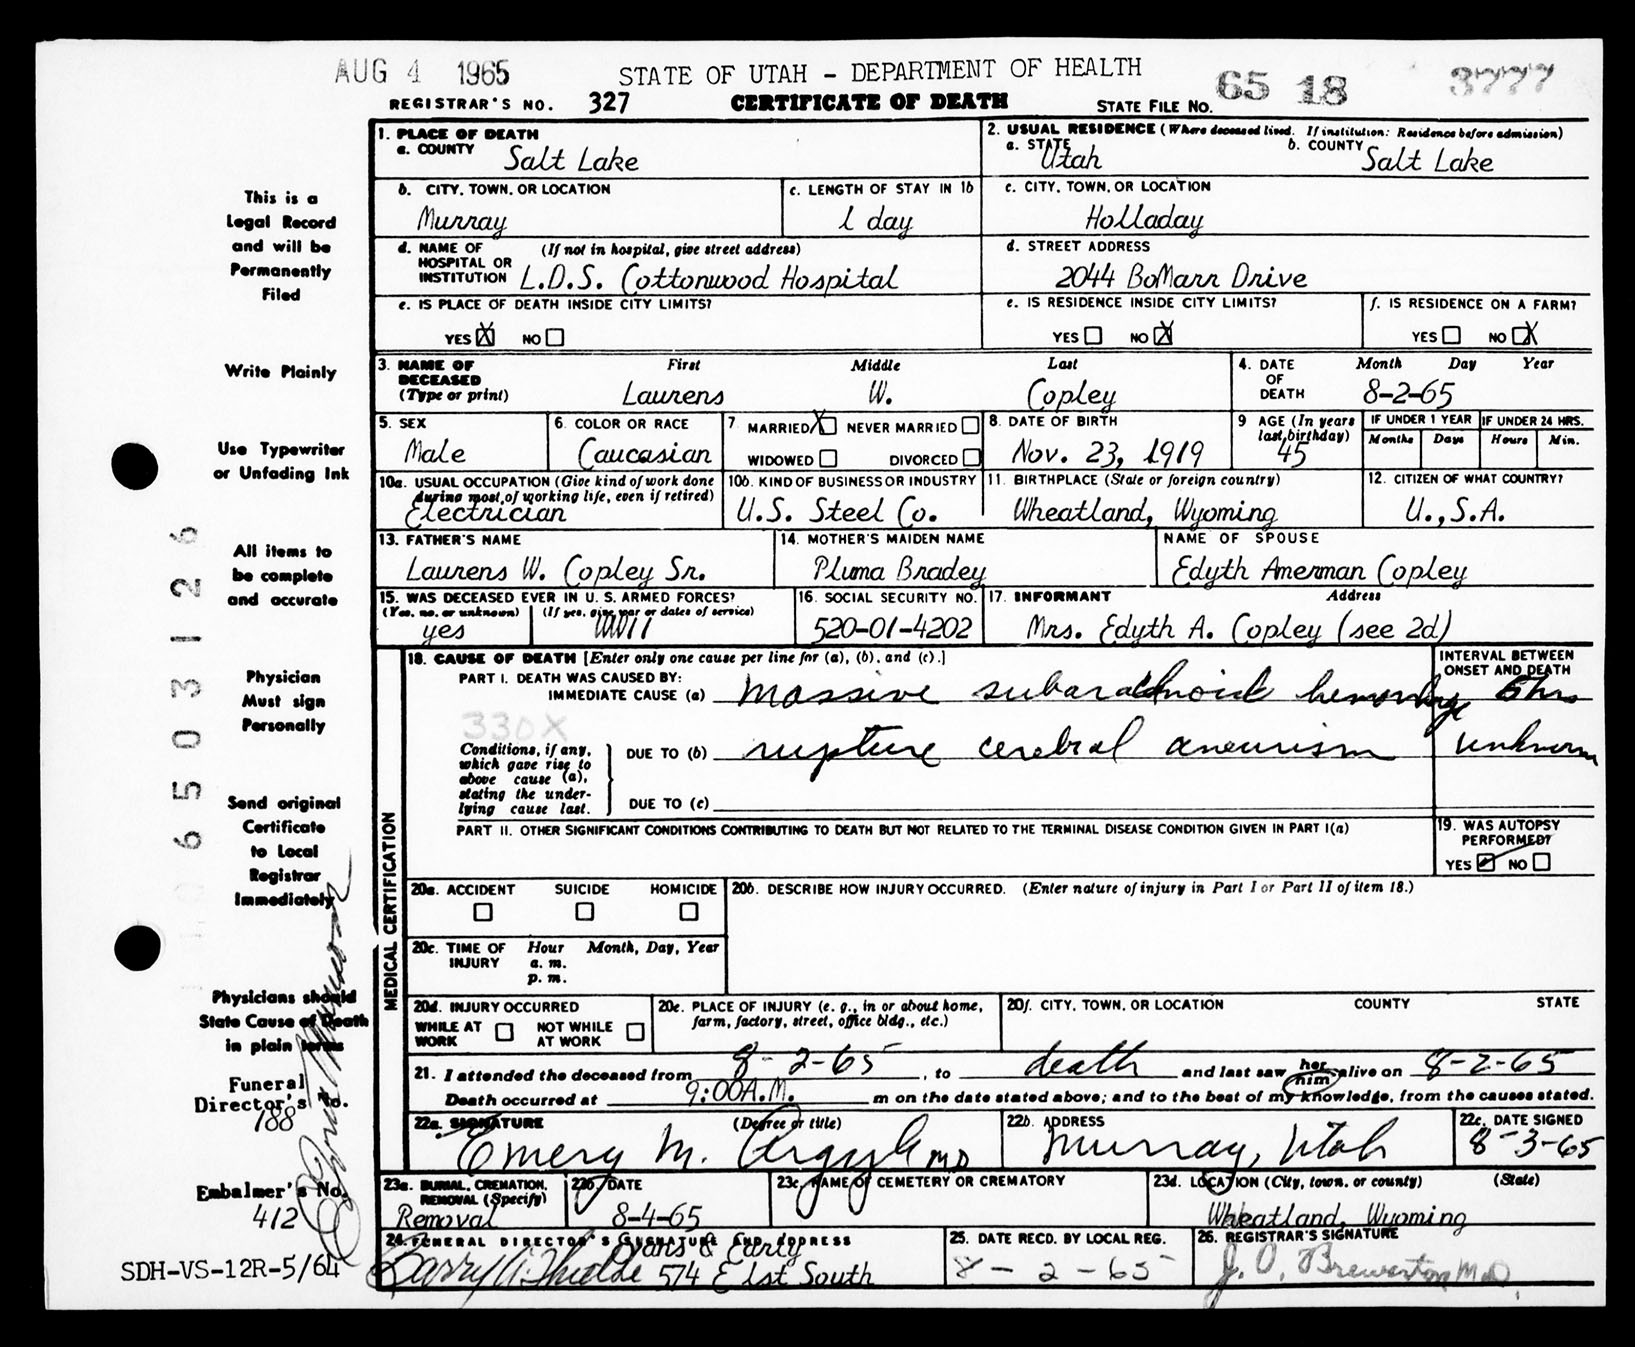 AUG 4 1965
STATE OF UTAH - DEPARTMENT OF HEALTH
65 18 3777
REGISTRAR'S NO. 327 CERTIFICATE OF DEATH STATE FILE NO.
1. PLACE OF DEATH
a. COUNTY Salt Lake
2. USUAL RESIDENCE (Where deceased lived. If institution: Residence before admission)
a. STATE Utah b. COUNTY Salt Lake
b. CITY, TOWN, OR LOCATION Murray
c. LENGTH OF STAY IN 1b 1 day
c. CITY, TOWN, OR LOCATION Holladay
d. NAME OF HOSPITAL OR INSTITUTION (If not in hospital, give street address) L.D.S. Cottonwood Hospital
d. STREET ADDRESS 2044 BoMarr Drive
e. IS PLACE OF DEATH INSIDE CITY LIMITS? YES X NO
e. IS RESIDENCE INSIDE CITY LIMITS? YES NO X
f. IS RESIDENCE ON A FARM? YES NO X
3. NAME OF DECEASED (Type or print) First Middle Last
Laurens W. Copley
4. DATE OF DEATH Month Day Year
8-2-65
5. SEX Male
6. COLOR OR RACE Caucasian
7. MARRIED X NEVER MARRIED
WIDOWED DIVORCED
8. DATE OF BIRTH Nov. 23, 1919
9 AGE (In years last birthday) 45
IF UNDER 1 YEAR Months Days
IF UNDER 24 HRS. Hours Min.
10a. USUAL OCCUPATION (Give kind of work done during most of working life, even if retired) Electrician
10b. KIND OF BUSINESS OR INDUSTRY U.S. Steel Co.
11. BIRTHPLACE (State or foreign country) Wheatland, Wyoming
12. CITIZEN OF WHAT COUNTRY? U.,S.A.
13. FATHER'S NAME Laurens W. Copley Sr.
14. MOTHER'S MAIDEN NAME Pluma Bradey
NAME OF SPOUSE Edyth Amerman Copley
15. WAS DECEASED EVER IN U. S. ARMED FORCES?
(Yes, no, or unknown) yes (If yes, give war or dates of service) WWII
16. SOCIAL SECURITY NO. 520-01-4202
17. INFORMANT Address
Mrs. Edyth A. Copley (see 2d)
MEDICAL CERTIFICATION
18. CAUSE OF DEATH [Enter only one cause per line for (a), (b), and (c).]
INTERVAL BETWEEN ONSET AND DEATH
PART I. DEATH WAS CAUSED BY:
IMMEDIATE CAUSE (a) massive subarachnoid hemorrhage 5 hrs
330X
Conditions, if any, which gave rise to above cause (a), stating the under-lying cause last.
DUE TO (b) rupture cerebral aneurism unknown
DUE TO (c)
PART II. OTHER SIGNIFICANT CONDITIONS CONTRIBUTING TO DEATH BUT NOT RELATED TO THE TERMINAL DISEASE CONDITION GIVEN IN PART I(a)
19. WAS AUTOPSY PERFORMED?
YES NO
20a. ACCIDENT SUICIDE HOMICIDE
20b. DESCRIBE HOW INJURY OCCURRED. (Enter nature of injury in Part I or Part II of item 18.)
20c. TIME OF INJURY Hour Month, Day, Year
a. m.
p. m.
20d. INJURY OCCURRED
WHILE AT WORK NOT WHILE AT WORK
20e. PLACE OF INJURY (e. g., in or about home, farm, factory, street, office bldg., etc.)
20f. CITY, TOWN, OR LOCATION COUNTY STATE
21. I attended the deceased from 8-2-65, to death and last saw her him alive on 8-2-65
Death occurred at 9:00A.M. m on the date stated above; and to the best of my knowledge, from the causes stated.
22a. SIGNATURE (Degree or title)
Emery M. Argyle MD
22b. ADDRESS
Murray, Utah
22c. DATE SIGNED
8-3-65
23a. BURIAL, CREMATION, REMOVAL (Specify) Removal
22b DATE 8-4-65
23c. NAME OF CEMETERY OR CREMATORY
23d. LOCATION (City, town, or county) (State)
Wheatland, Wyoming
24. FUNERAL DIRECTOR'S SIGNATURE AND ADDRESS
Evans & Early
574 E 1st South
25. DATE RECD. BY LOCAL REG.
8-2-65
26. REGISTRAR'S SIGNATURE
J. O. Brewerton M.D.
This is a
Legal Record
and will be
Permanently
Filed
Write Plainly
Use Typewriter
or Unfading Ink
All items to
be complete
and accurate
Physician
Must sign
Personally
Send original
Certificate
to Local
Registrar
Immediately
Physicians should
State Cause of Death
in plain terms
Funeral
Director's No.
188
Embalmer's No.
412
SDH-VS-12R-5/64
6503126